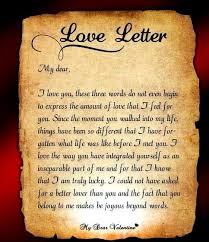 Love Letter
My dear,
I love you, these three words do not even begin
to express the amount of love that I feel for
you. Since the moment you walked into my life,
things have been so different that I have for-
gotten what life was like before I met you. I
love the way you have integrated yourself as an
inseparable part of me and for that I know
that I am truly lucky. I could not have asked
for a better lover than you and the fact that you
belong to me makes be joyous beyond words.
My Dear Valentine